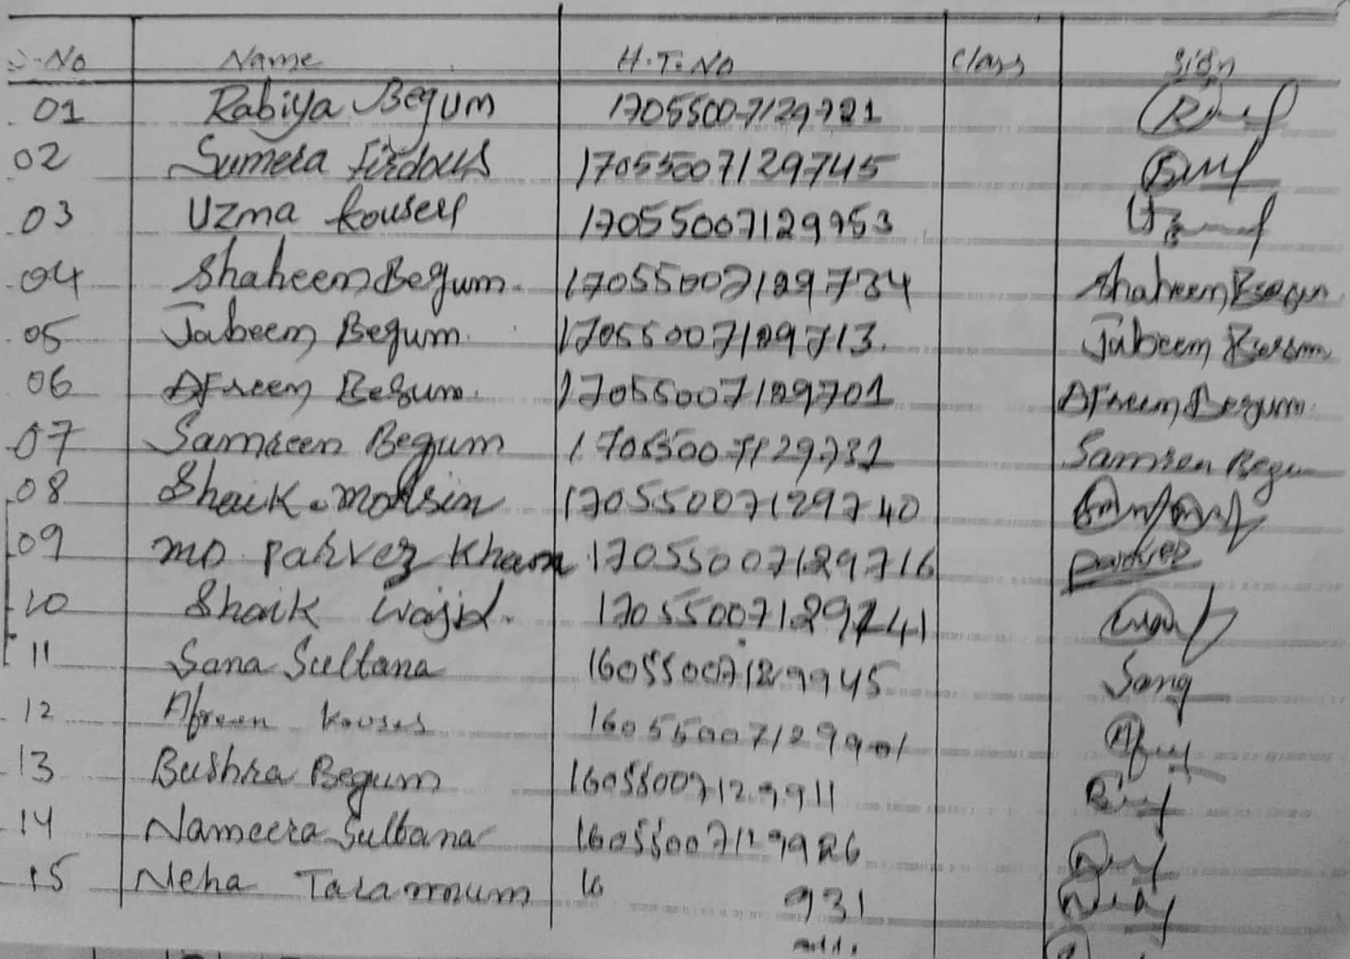 S.No Name H.T.No Class Sign
01 Rabiya Begum 17055007129721
02 Sumera firdous 17055007129745
03 Uzma kouser 17055007129753
04 Shaheen Begum. 17055007129734 Shaheen Begum
05 Jabeen Begum. 17055007129713. Jabeen Begum
06 Afreen Begum. 17055007129701 Afreen Begum.
07 Samreen Begum 17055007129732 Samreen Begum
08 Shaik. mohsin 17055007129740
09 MD Parvez Khan 17055007129716 parvez
10 Shaik wajid. 17055007129741
11 Sana Sultana 16055007129945 Sana
12 Afreen kouser 16055007129901
13 Bushra Begum 16055007129911
14 Nameera Sultana 16055007129926
15 Neha Taramnum 16 931